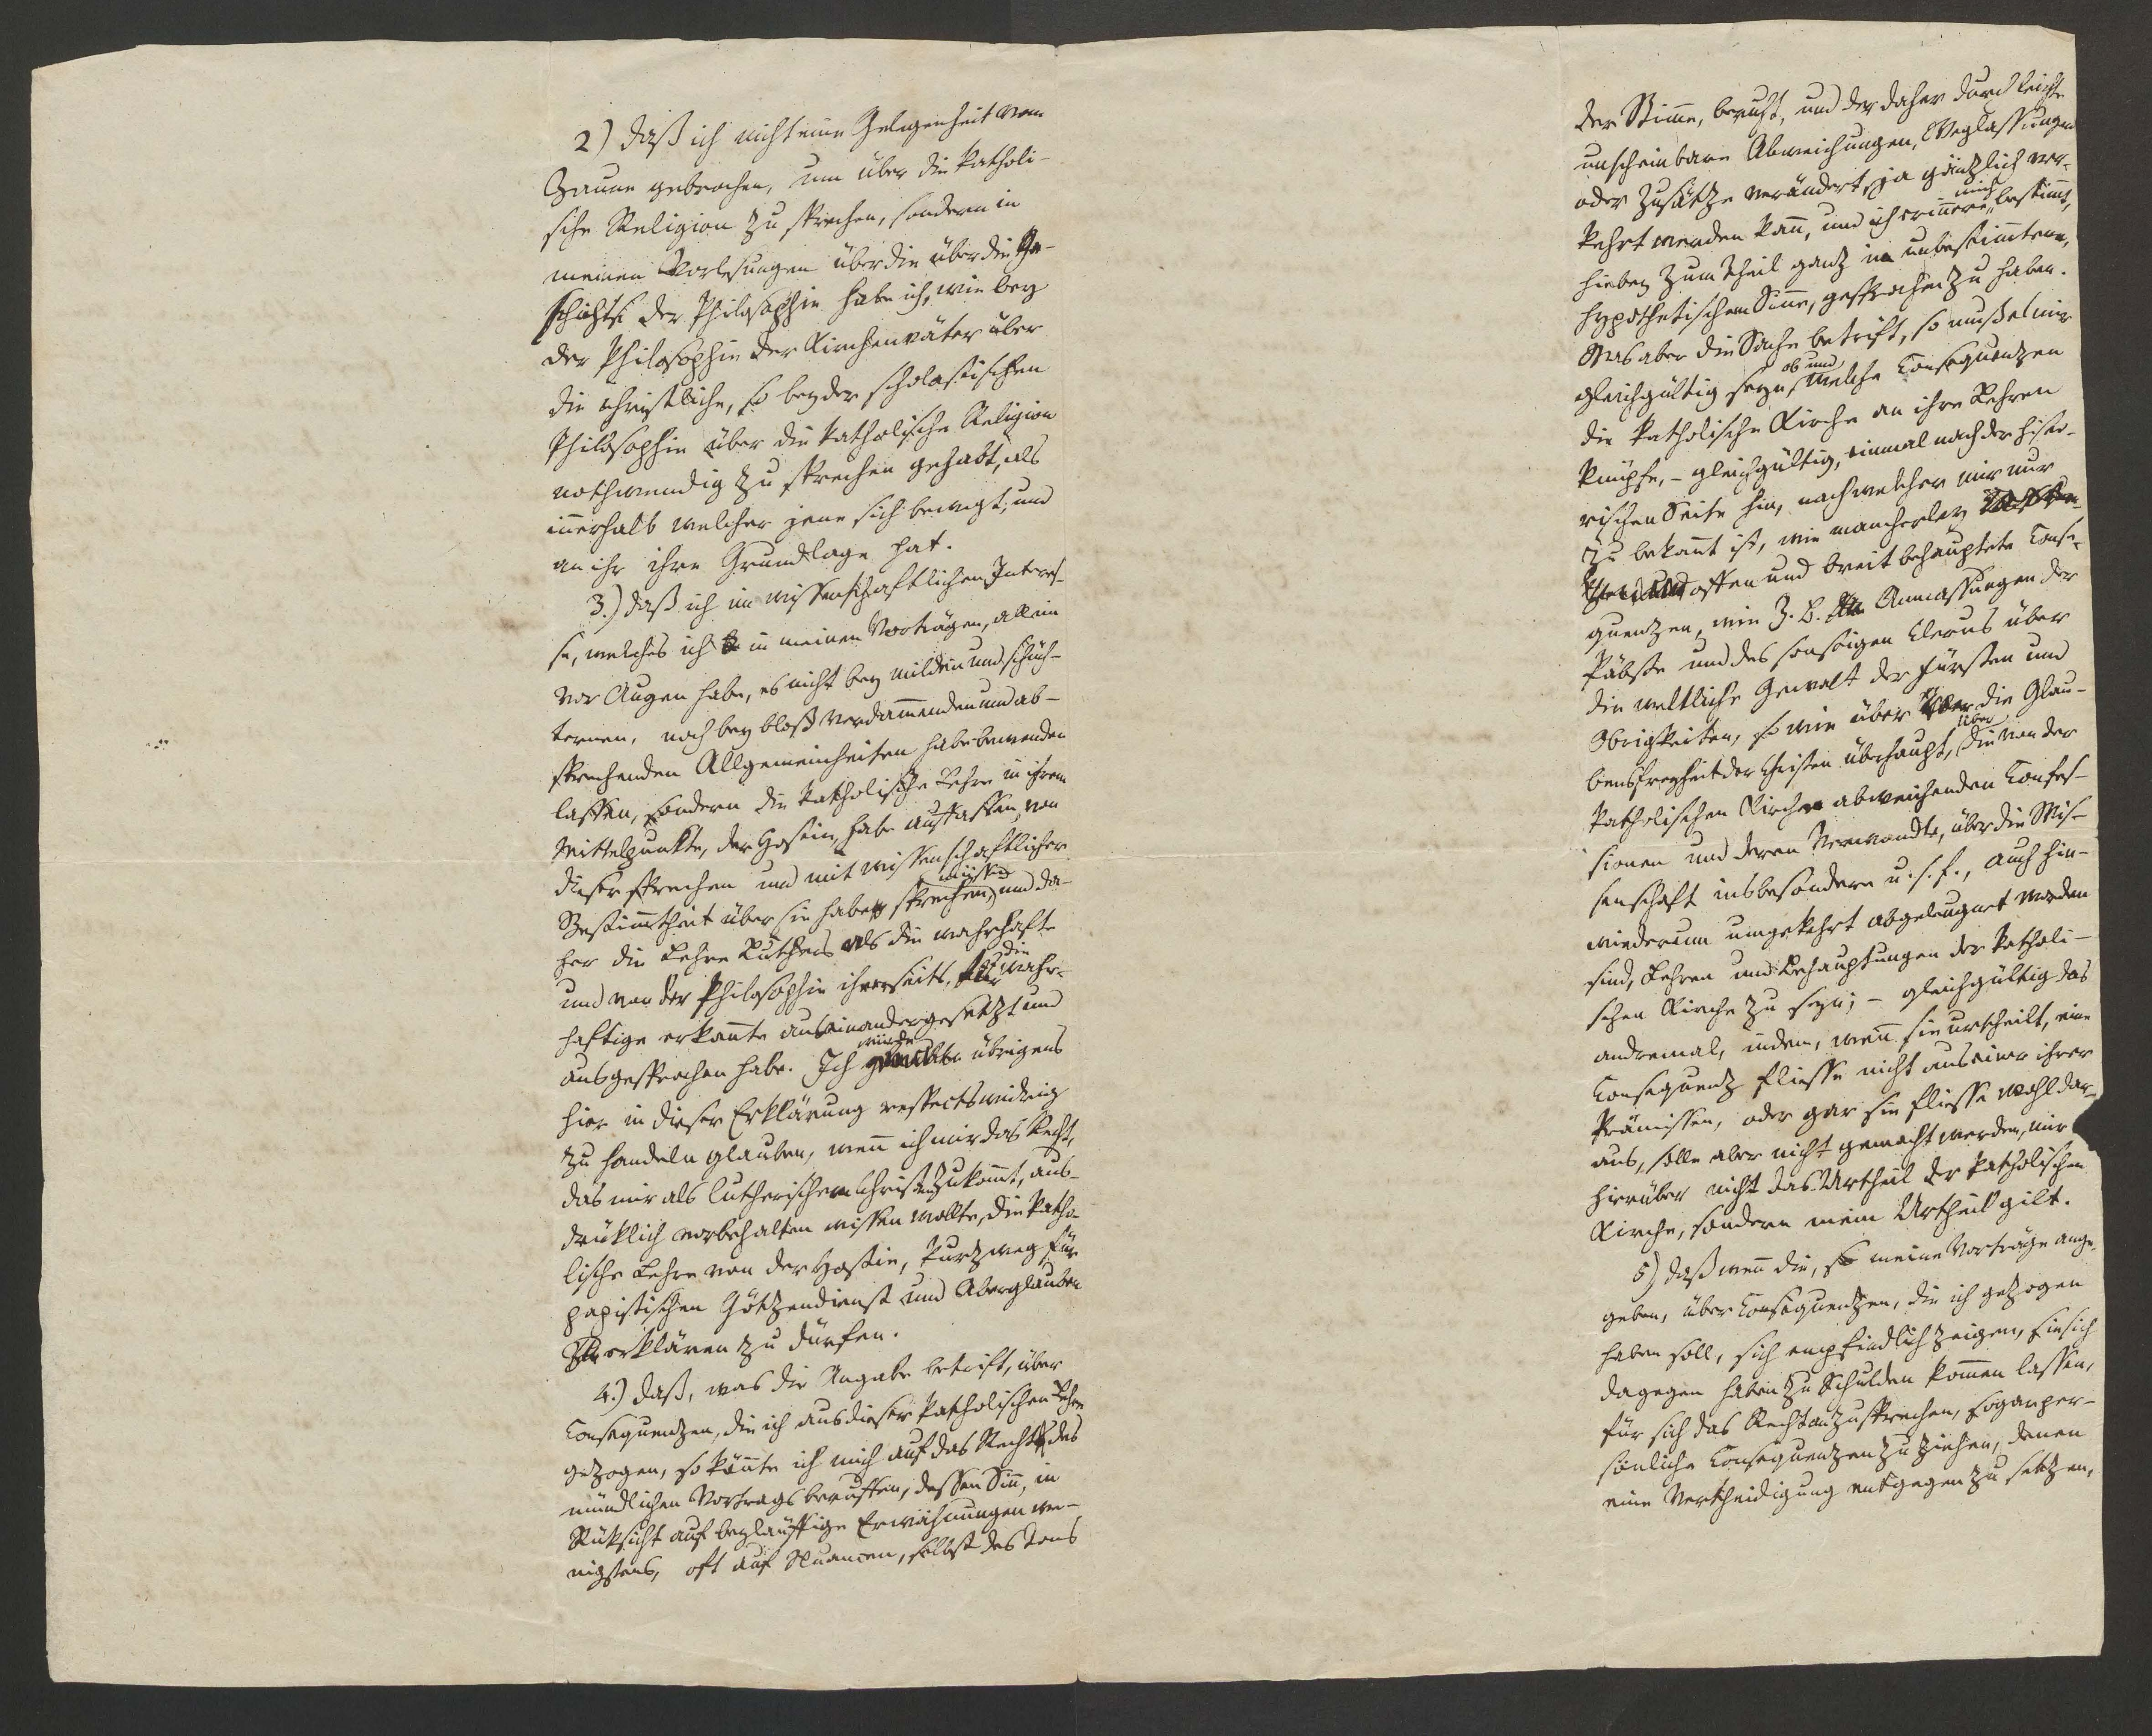 2) daß ich nicht eine Gelegenheit vom
Zaune gebrochen, um über die katholi-
sche Religion zu sprechen, sondern in
meinen Vorlesungen über die über die Ge-
schichte der Philosophie habe ich, wie bey
der Philosophie der Kirchenväter über
die christliche, so bey der scholastischen
Philosophie über die katholische Religion
nothwendig zu sprechen gehabt, als
innerhalb welcher jene sich bewegt, und
an ihr ihre Grundlage hat.
3.) daß ich im wissenschaftlichen Interes-
se, welches ich in meinen Vorträgen, allein
vor Augen habe, es nicht bey milden und schüch-
ternen, noch bey bloß verdammenden und ab-
sprechenden Allgemeinheiten habe bewenden
lassen, sondern die katholische Lehre in ihrem
Mittelpunkte, der Hostie, habe auffassen, von
dieser sprechen und mit wissenschaftlicher
müssen
Bestimmtheit über sie haben sprechen, und da-
her die Lehre Luthers als die wahrhafte
die
und von der Philosophie ihrerseits, für wahr-
haftige erkannte auseinandergesetzt und
würde
ausgesprochen habe. Ich übrigens
hier in dieser Erklärung respectswidrig
zu handeln glauben, wenn ich mir das Recht,
das mir als lutherischem Christen zukommt, aus-
drüklich vorbehalten wissen wollte, die katho-
lische Lehre von der Hostie, kurzweg für
papistischen Götzendienst und Aberglauben
erklären zu dürfen.
4.) daß, was die Angabe betrift, über
Consequenzen, die ich aus dieser katholischen Lehre
gezogen, so könnte ich mich auf das Recht des
mündlichen Vortrags beruffen, dessen Sinn, in
Rüksicht auf beyläuffige Erwähnungen we-
nigstens, oft auf Nuancen, selbst des Tons
der Stimme, beruht, und der daher durch leichte
unscheinbare Abweichungen, Weglassungen
oder Zusätze verändert, ja gänzlich ver-
mich
kehrt werden kann, und ich erinnere bestimmt,
hiebey zum Theil ganz in unbestimmterem,
hypothetischem Sinne, gesprochen zu haben.
Was aber die Sache betrift, so muß es mir
ob und
gleichgültig seyn, welche Consequenzen
die katholische Kirche an ihre Lehren
knüpfe, - gleichgültig, einmal nach der histo-
rischen Seite hin, nach welcher mir nur
zu bekannt ist, wie mancherley
offen und breit behauptete Conse-
quenzen, wie z. B. Anmassungen der
Päbste und des sonstigen Clerus über
die weltliche Gewalt der Fürsten und
Obrigkeiten, so wie über die Glau-
über
bensfreyheit der Christen überhaupt, die von der
katholischen Kirche abweichenden Confes-
sionen und deren Verwandte, über die Wis-
senschaft insbesondere u. s. f., auch hin-
wiederum umgekehrt abgeleugnet worden
sind, Lehren und Behauptungen der katholi-
schen Kirche zu seyn; - gleichgültig das
andremal, indem, wenn sie urtheilt, eine
Consequenz fliesse nicht aus einer ihrer
Prämissen, oder gar sie fliesse wohl dar-
aus, solle aber nicht gemacht werden, mir
hierüber nicht das Urtheil der katholischen
Kirche, sondern mein Urtheil gilt.
5) daß wenn die, so meine Vorträge ange-
geben, über Consequenzen, die ich gezogen
haben soll, sich empfindlich zeigen, sie sich
dagegen haben zu Schulden kommen lassen,
für sich das Recht anzusprechen, sogar per-
sönliche Consequenzen zu ziehen, denen
eine Vertheidigung entgegen zu setzen,